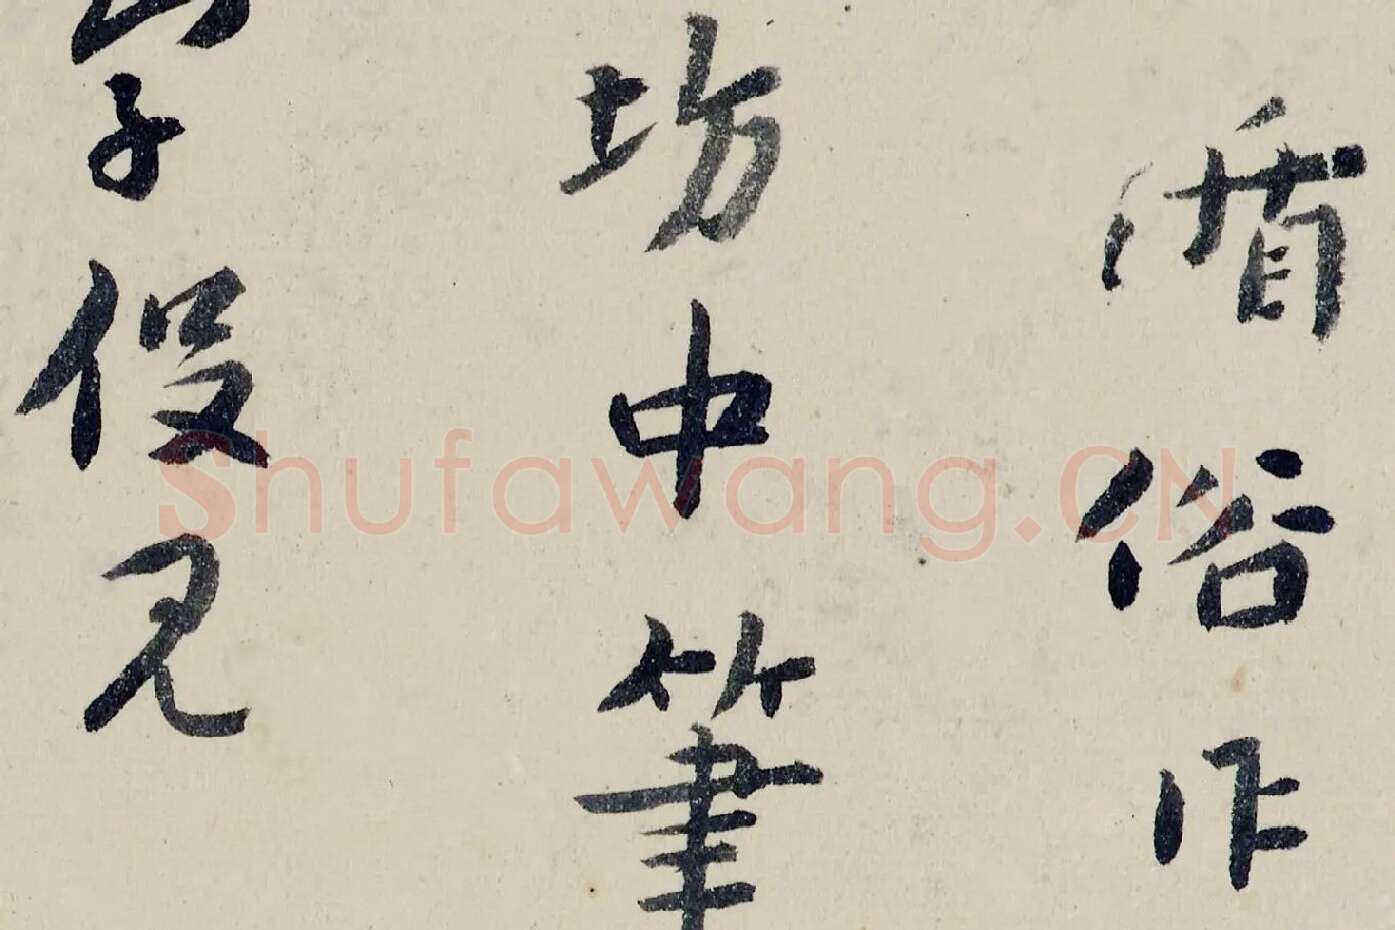 循俗作
坊中筆
字假見
Shufawang.CN